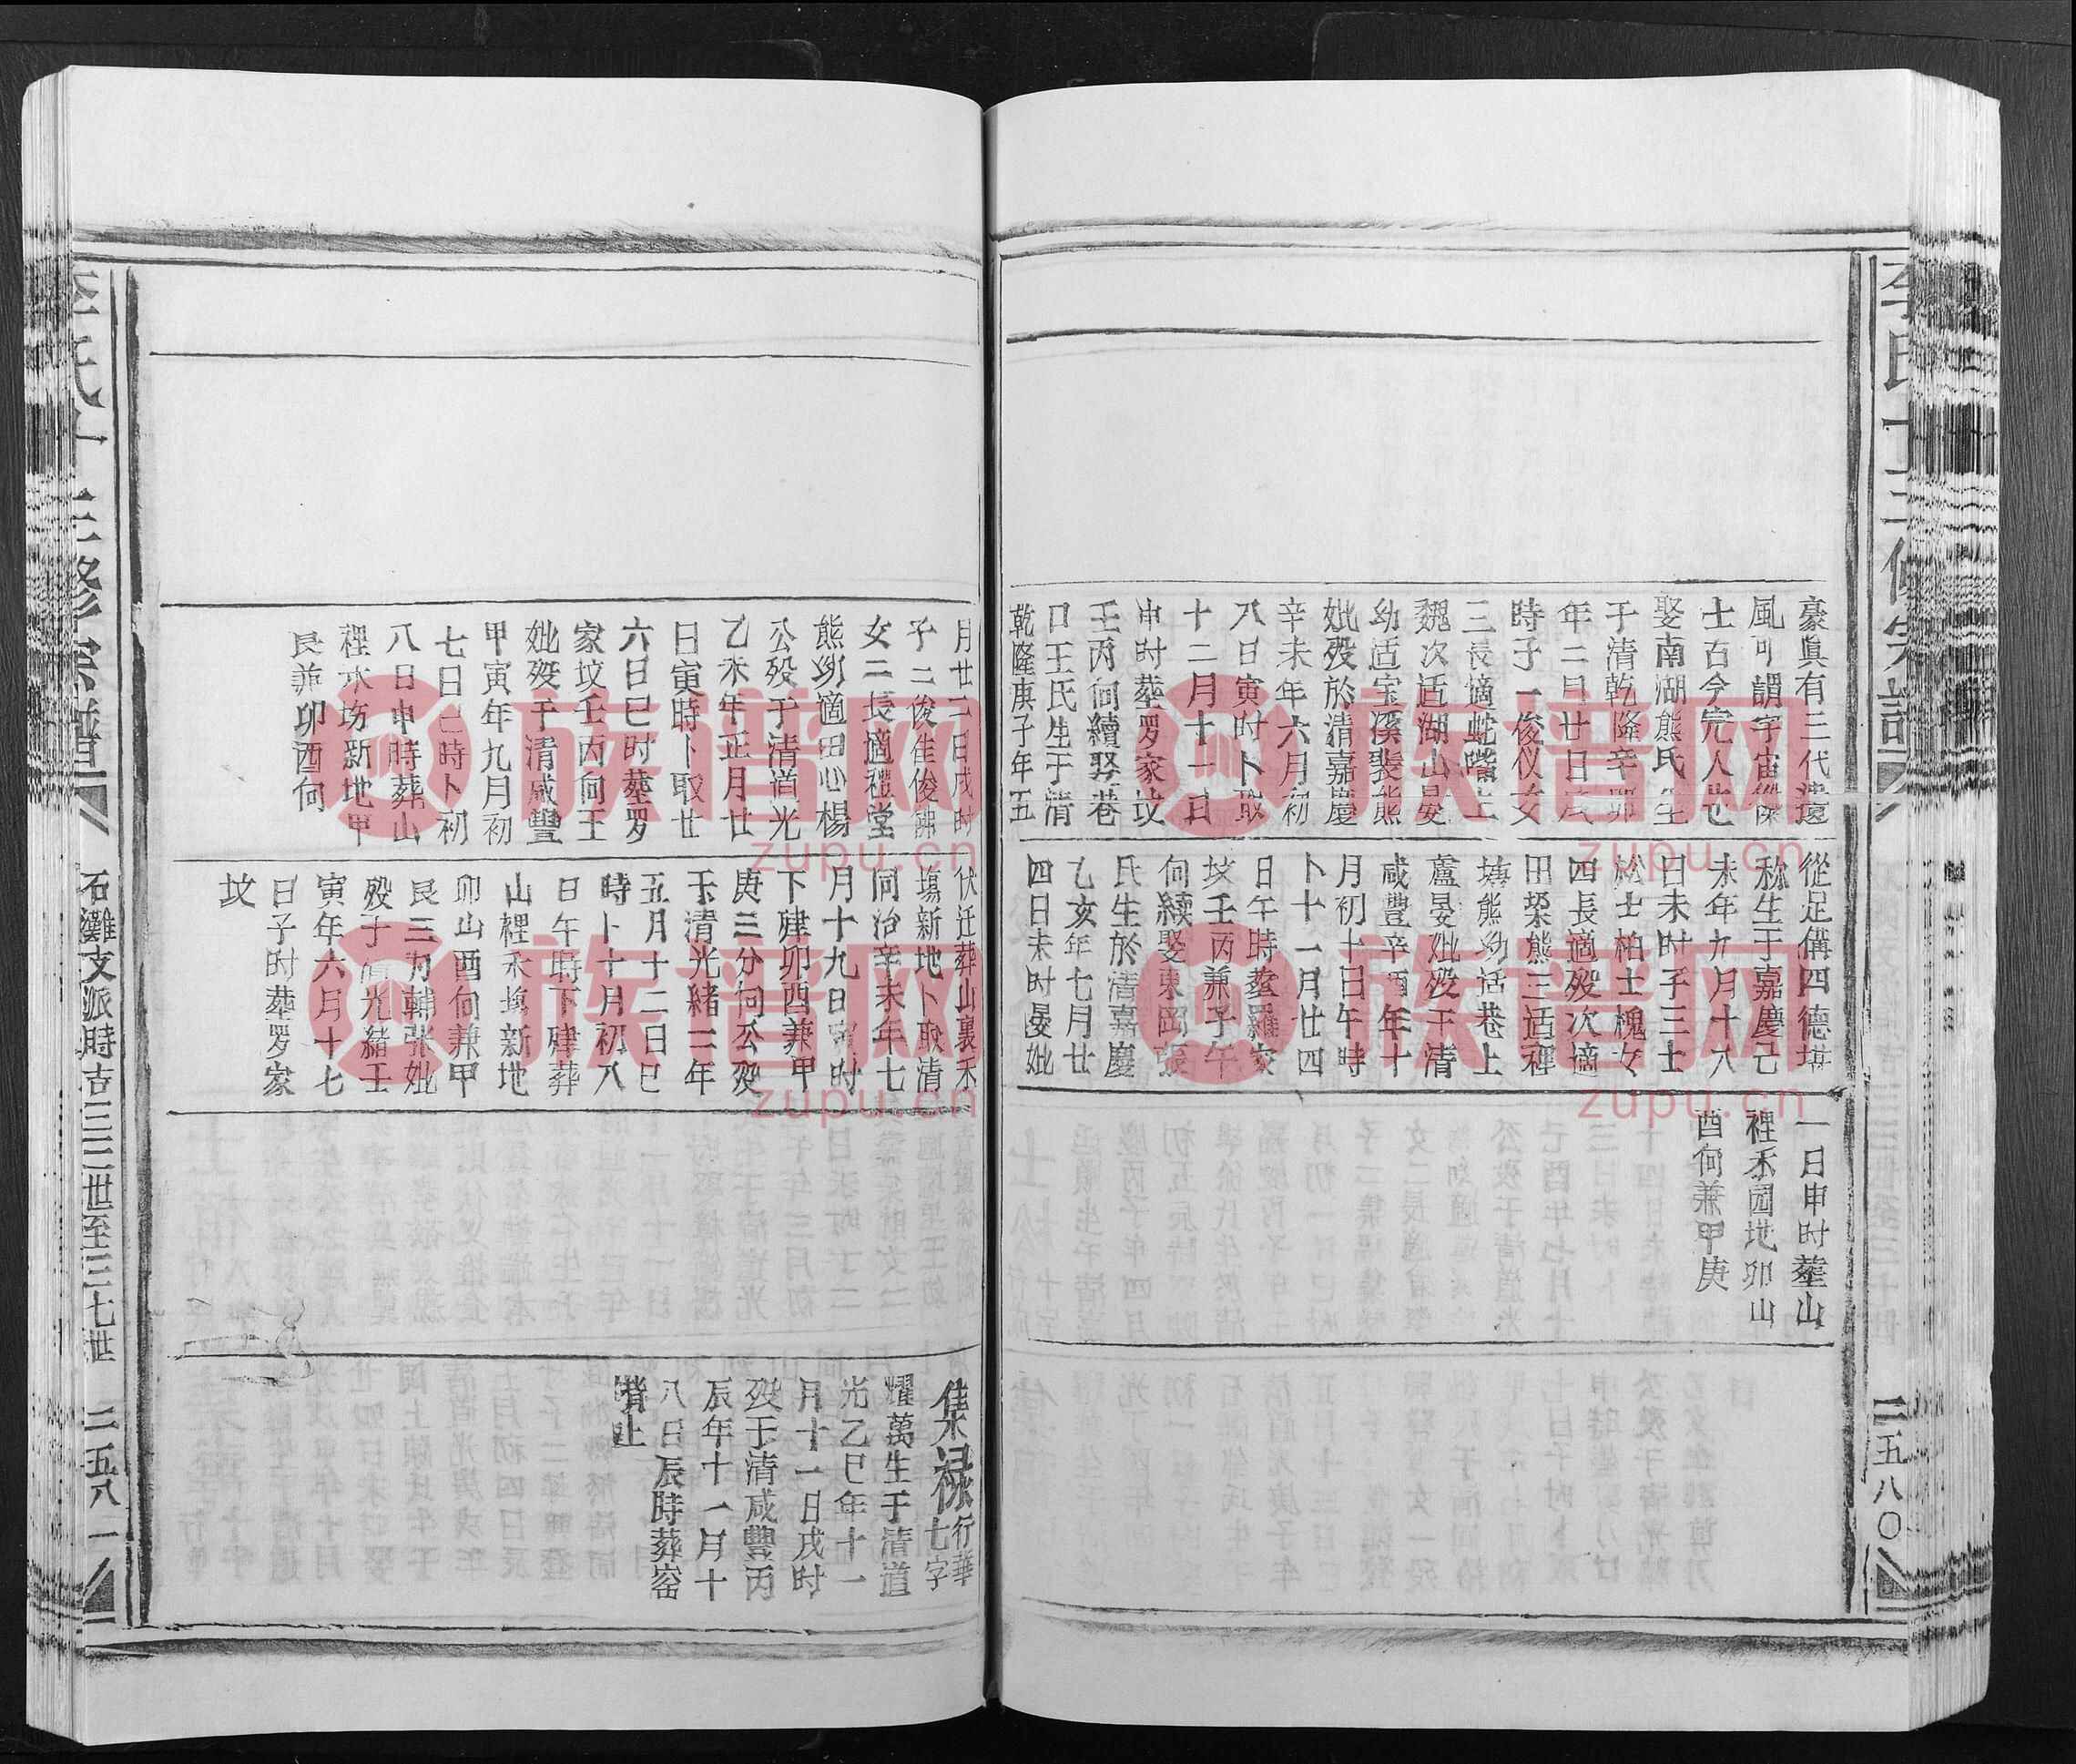 李氏十二修宗譜
二五八〇
豪眞有三代遺
風可謂宇宙傑
士古今完人也
娶南湖熊氏生
于清乾隆辛卯
年二月廿日辰
時子一俊仪女
三長適蛇嘴上
魏次适湖山晏
幼适宝溪裴熊
妣殁於清嘉慶
辛未年六月初
八日寅时卜取
十二月十一日
申时塟罗家坟
壬丙向續娶巷
口王氏生于清
乾隆庚子年五
從足備四德堪
称生于嘉慶己
未年九月十八
日未时子三士
松士柏士槐女
四長適殁次適
田㙡熊三适裡
塘熊幼适巷上
蘆晏妣殁于清
咸豐辛酉年十
月初十日午時
卜十一月廿四
日午時塟羅家
坟壬丙兼子午
向續娶東岡張
氏生於清嘉慶
乙亥年七月廿
四日未时晏妣
一日申时塟山
裡禾園地卯山
酉向兼甲庚
月廿二日戌时
子二俊佳俊
女二長適禮堂
熊幼適田心楊
公殁于清道光
乙未年正月廿
日寅時卜取廿
六日巳时塟罗
家坟壬丙向王
妣殁于清咸豐
甲寅年九月初
七日巳時卜初
八日申時葬山
裡禾坊新地甲
艮兼卯酉向
伏迁葬山裏禾
塲新地卜取清
同治辛未年七
月十九日寅时
下肂卯酉兼甲
庚三分向公殁
于清光緒二年
五月十二日巳
時卜十月初八
日午時下肂葬
山裡禾塲新地
卯山酉向兼甲
艮三为輔张妣
殁于清光緒壬
寅年六月十七
日子时塟罗家
坟
集禄行華七字
耀萬生于清道
光乙巳年十一
月十一日戌时
殁于清咸豐丙
辰年十一月十
八日辰時葬窑
嘴上
李氏十二修宗譜
石灘支派時古三三世至三七世
二五八一
族谱网
zupu.cn
族谱网
zupu.cn
族谱网
zupu.cn
族谱网
zupu.cn